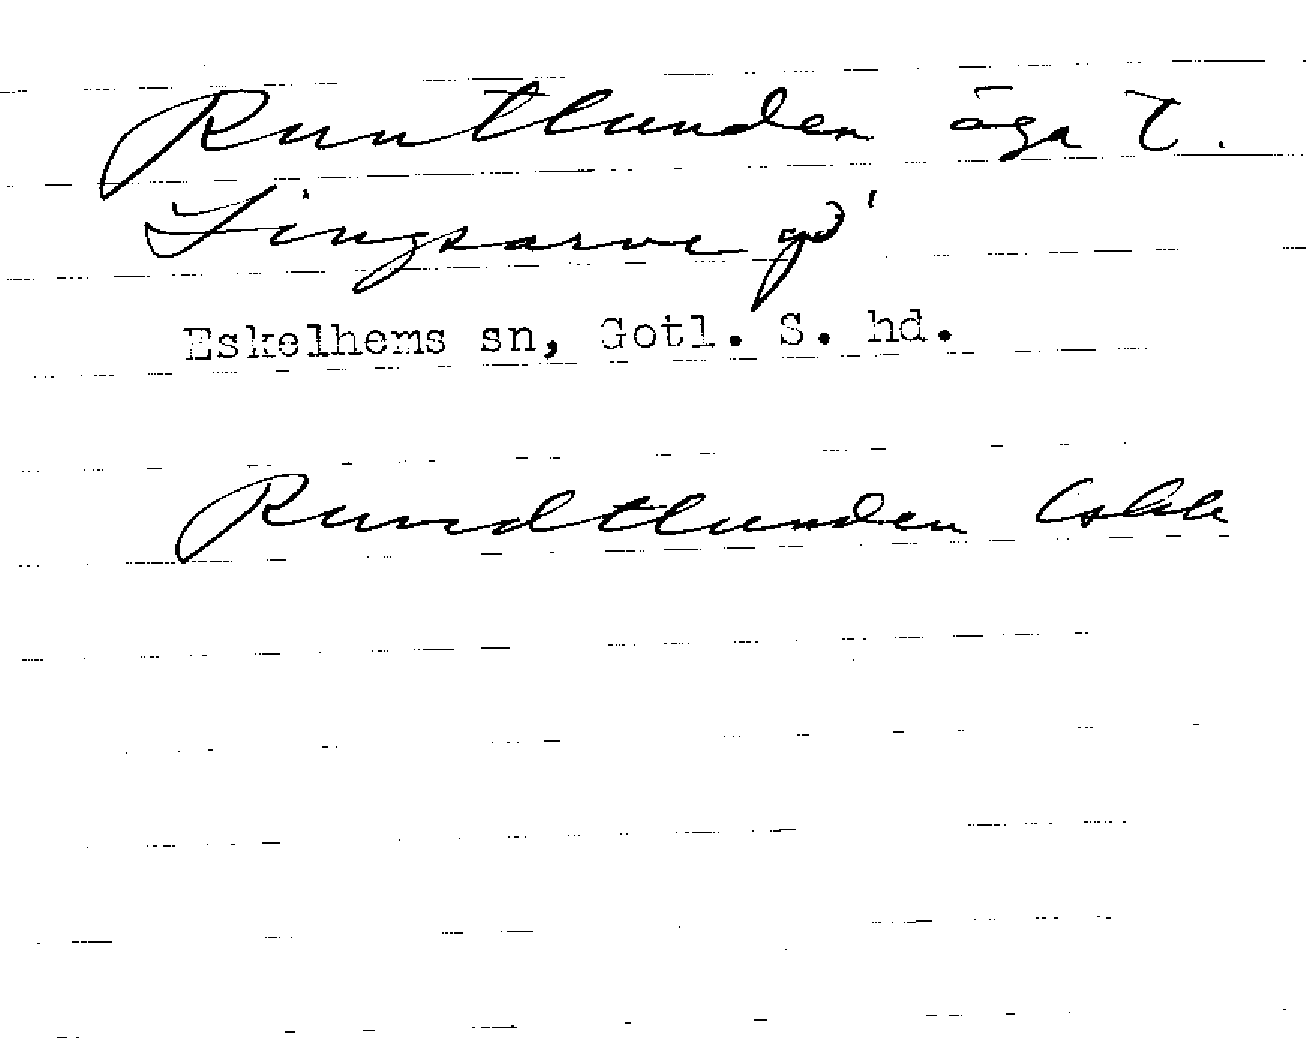 Runtlunden äga t.
Lingsarve gd
Eskelhems sn, Gotl. S. hd.
Rundtlunden